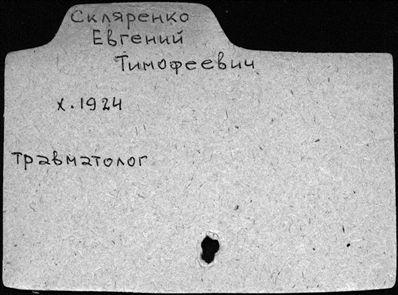 Скляренко
Евгений
Тимофеевич
х.1924
травматолог